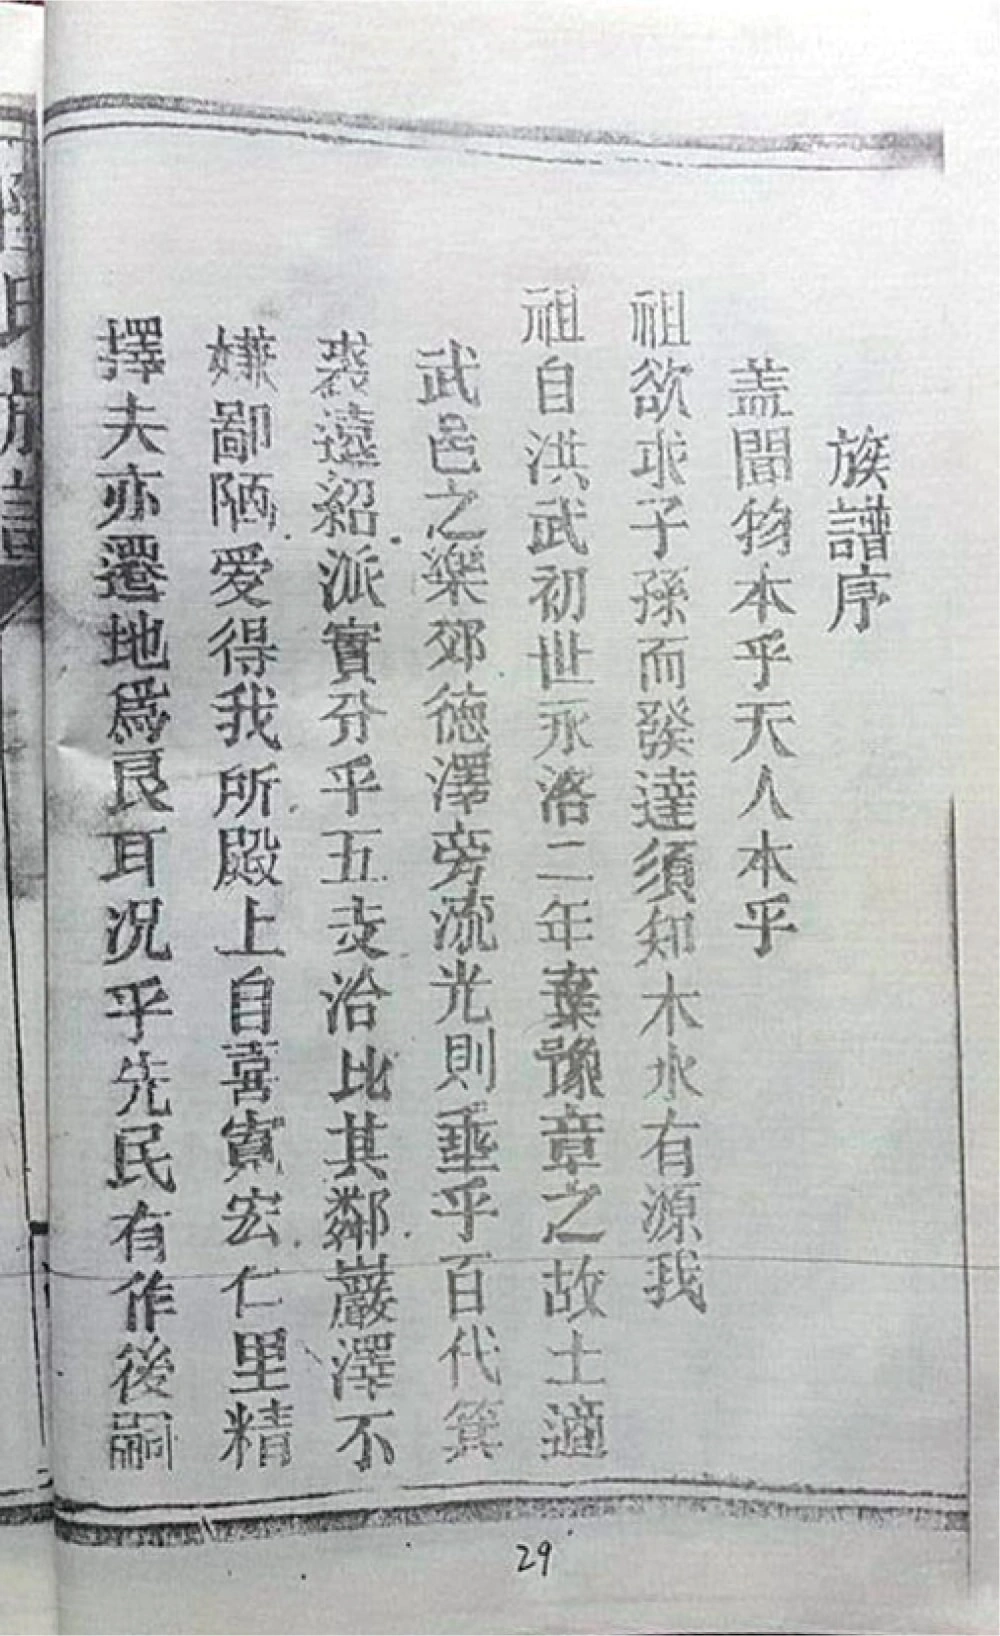 族譜序
盖聞物本乎天人本乎
祖欲求子孫而發達須知木水有源我
祖自洪武初世永洛二年棄豫章之故土適
武邑之樂郊德澤旁流光則垂乎百代箕
裘遠紹派實分乎五支洽比其鄰巖澤不
嫌鄙陋爰得我所殿上自喜賓宏仁里精
擇夫亦遷地為良耳况乎先民有作後嗣
氏族譜
29